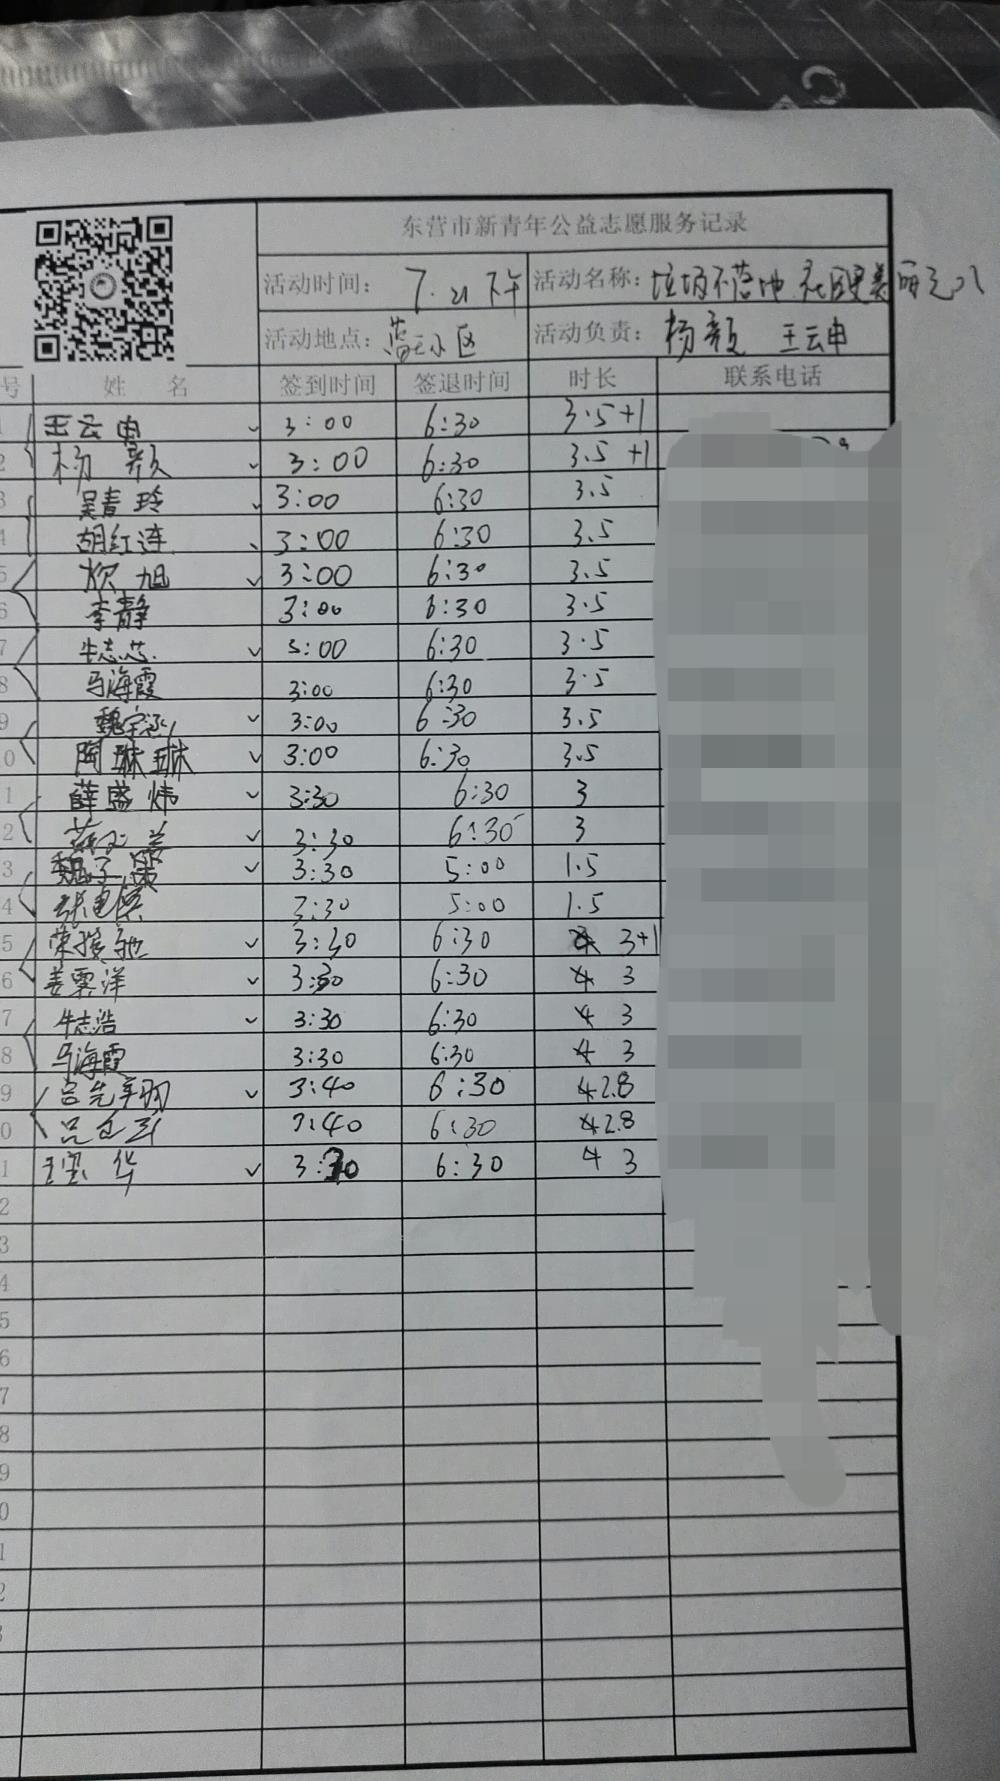 东营市新青年公益志愿服务记录
活动时间： 7.21 下午 活动名称： 垃圾不落地 社区更美丽
活动地点： 蓝天小区 活动负责： 杨颜 王云申
号 姓 名 签到时间 签退时间 时长 联系电话
1 王云申 ✓ 3:00 6:30 3.5+1
2 杨颜 ✓ 3:00 6:30 3.5+1
3 吴青玲 3:00 6:30 3.5
4 胡红连 3:00 6:30 3.5
5 旭 ✓ 3:00 6:30 3.5
6 李静 3:00 6:30 3.5
7 牛志芯 ✓ 3:00 6:30 3.5
8 马海霞 3:00 6:30 3.5
9 魏宇涵 ✓ 3:00 6:30 3.5
0 陶琳琳 ✓ 3:00 6:30 3.5
1 薛盛炜 ✓ 3:30 6:30 3
2 ✓ 3:30 6:30 3
3 魏子 ✓ 3:30 5:00 1.5
4 张 3:30 5:00 1.5
5 荣 驰 ✓ 3:30 6:30 3+1
6 姜霁洋 ✓ 3:30 6:30 4 3
7 牛志浩 ✓ 3:30 6:30 4 3
8 马海霞 3:30 6:30 4 3
9 ✓ 3:40 6:30 4 2.8
0 吕 3:40 6:30 4 2.8
1 王宝华 ✓ 3:30 6:30 4 3
2
3
4
5
6
7
8
9
0
1
2
3